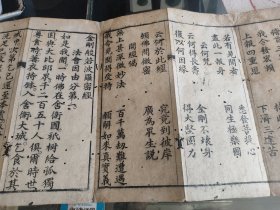 上報四重恩　下濟三途苦
若有見聞者　悉發菩提心
盡此一報身　同生極樂國
云何梵
云何得長壽　金剛不壞身
復以何因緣　得大堅固力
云何於此經　究竟到彼岸
願佛開微密　廣為眾生說
開經偈
無上甚深微妙法　百千萬劫難遭遇
我今見聞得受持　願解如來真實義
金剛般若波羅密經
法會因由分第一
如是我聞一時佛在舍衛國祇樹給孤獨
園與大比丘眾千二百五十人俱爾時世
尊食時著衣持鉢入舍衛大城乞食於其
城中次第乞已還至本處